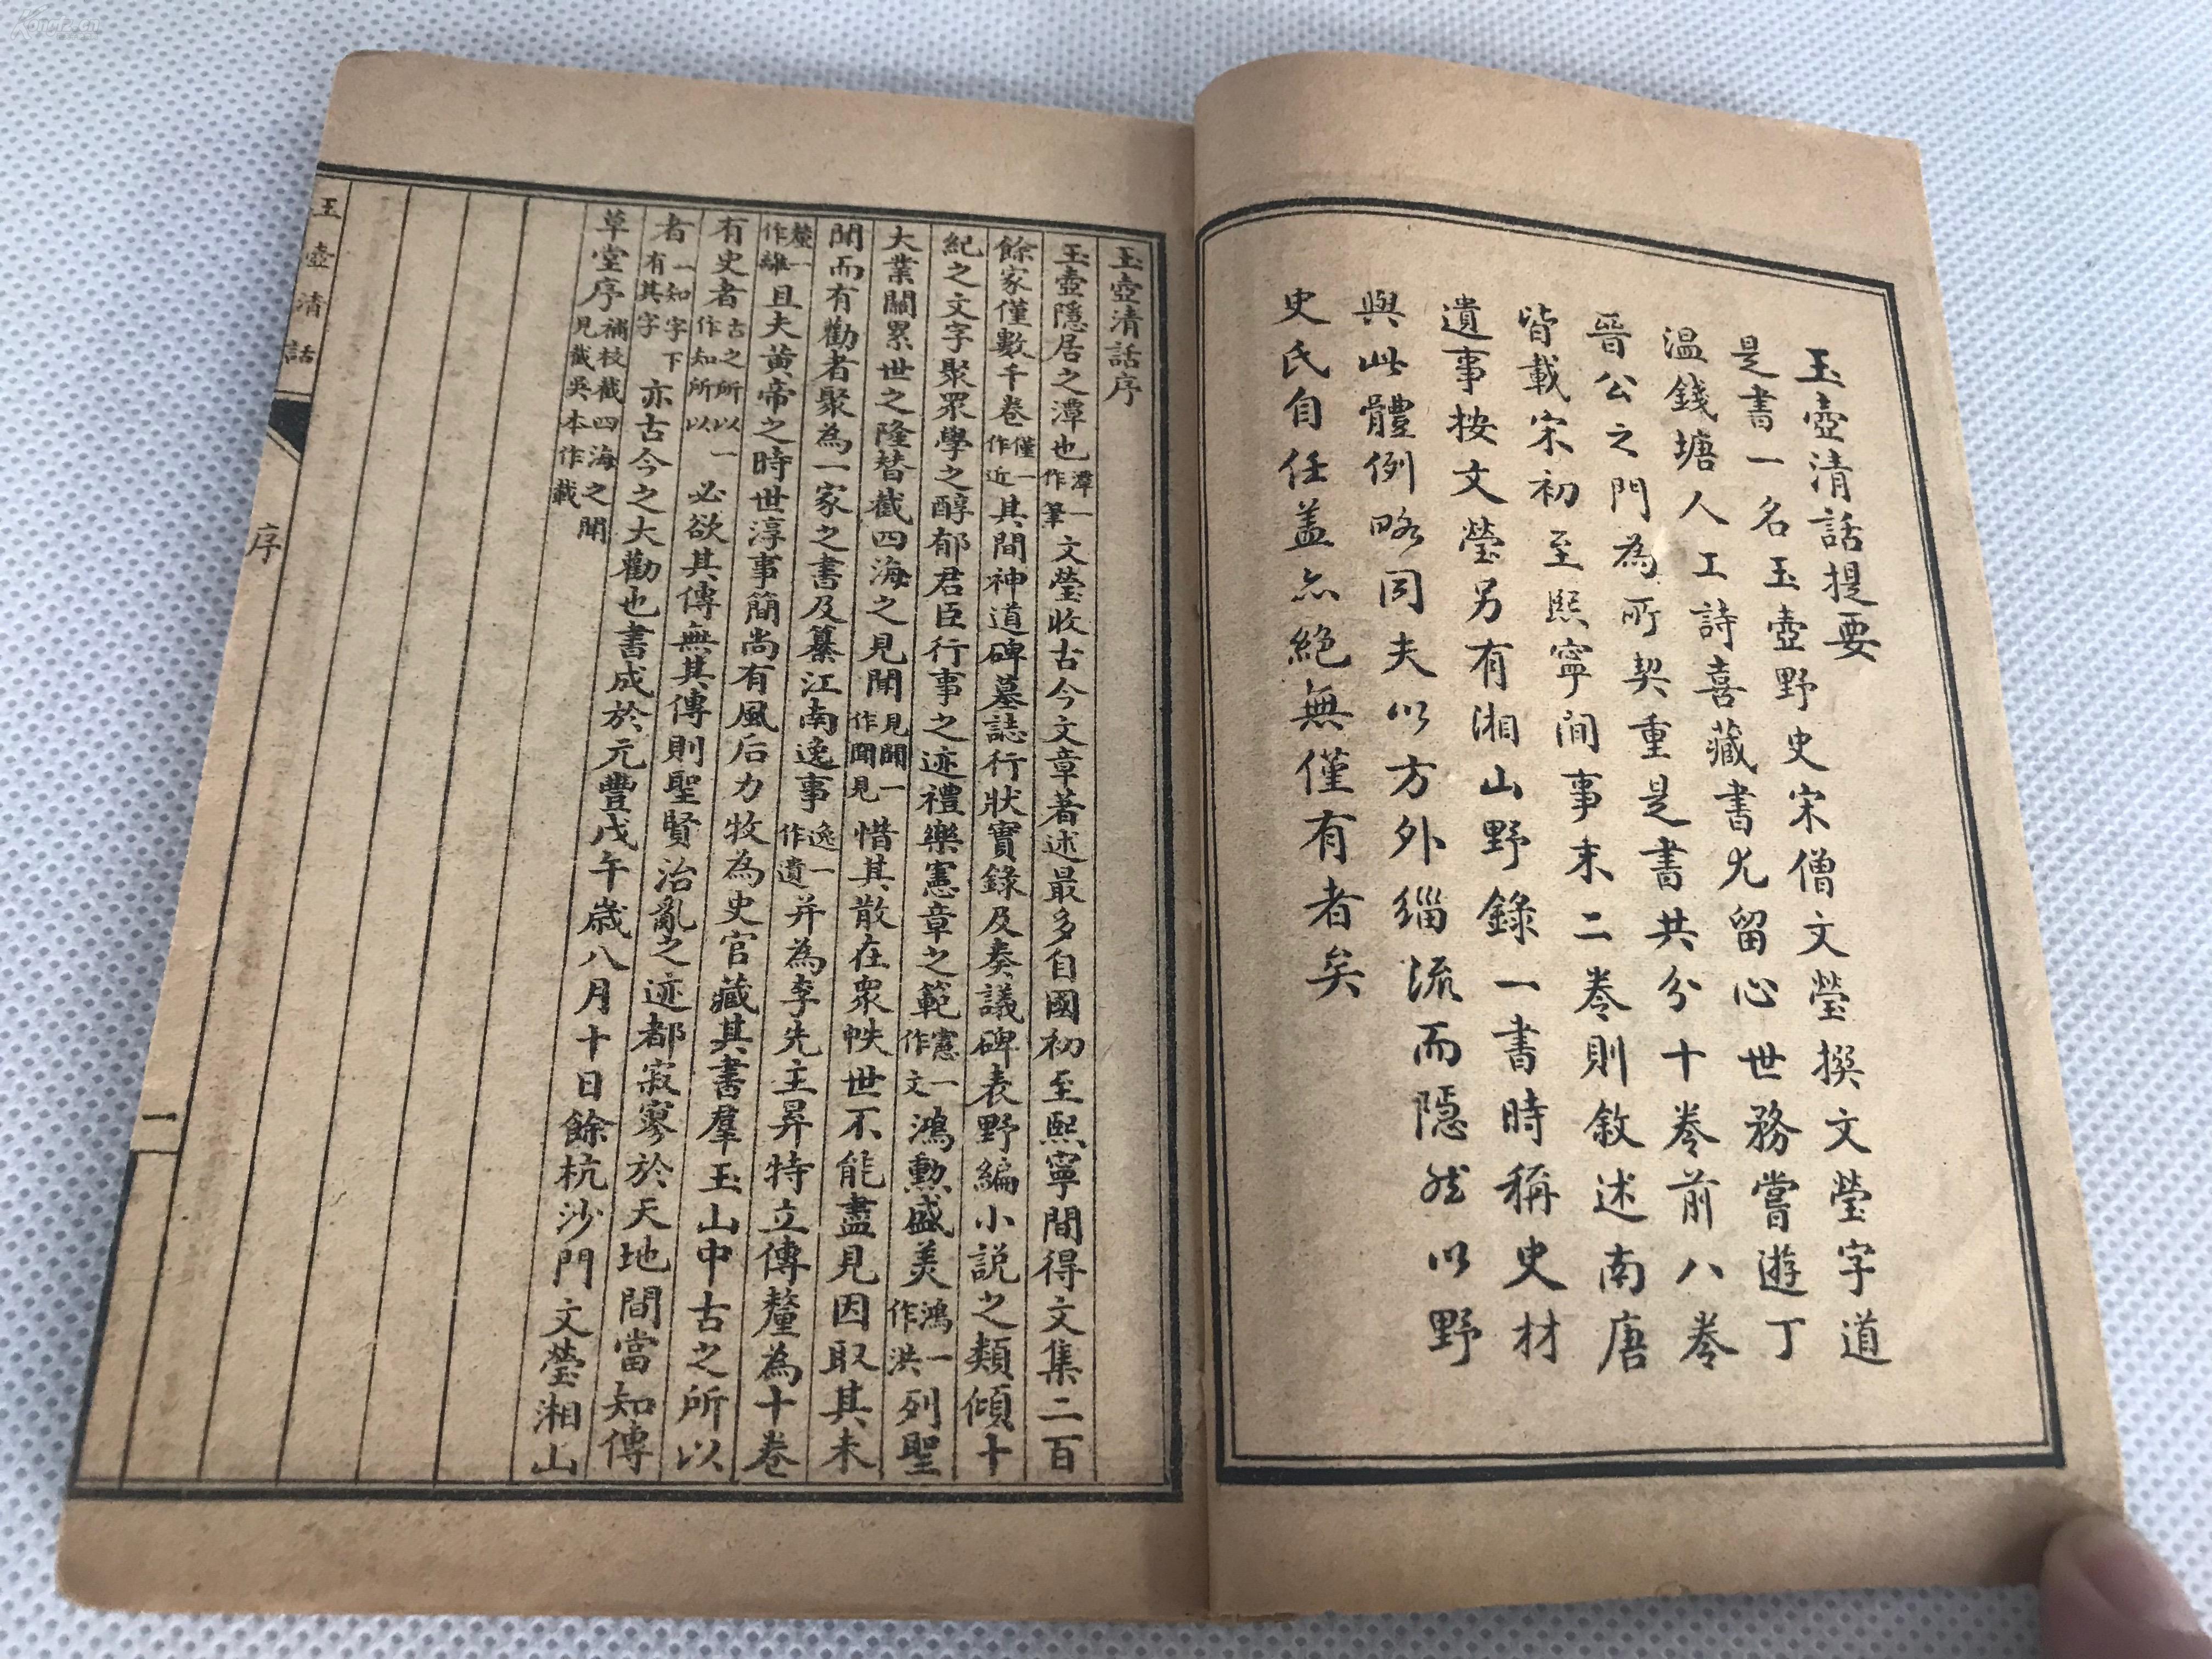 玉壺清話提要
是書一名玉壺野史宋僧文瑩撰文瑩字道
温錢塘人工詩喜藏書尤留心世務嘗遊丁
晉公之門為所契重是書共分十卷前八卷
皆載宋初至熙寧間事末二卷則敘述南唐
遺事按文瑩另有湘山野錄一書時稱史材
與此體例略同夫以方外緇流而隱然以野
史氏自任蓋亦絕無僅有者矣
玉壺清話序
玉壺隱居之潭也潭一作筆文瑩收古今文章著述最多自國初至熙寧間得文集二百
餘家僅數千卷僅一作近其間神道碑墓誌行狀實錄及奏議碑表野編小說之類傾十
紀之文字聚眾學之醇郁君臣行事之迹禮樂憲章之範憲一作文鴻勲盛美鴻一作洪列聖
大業關累世之隆替截四海之見聞見聞一作聞見惜其散在眾帙世不能盡見因取其未
聞而有勸者聚為一家之書及纂江南逸事逸一作遺并為李先主昇特立傳釐為十卷
釐一作離且夫黃帝之時世淳事簡尚有風后力牧為史官藏其書羣玉山中古之所以
有史者古之所以一作知所以必欲其傳無其傳則聖賢治亂之迹都寂寥於天地間當知傳
者一知字下有其字亦古今之大勸也書成於元豐戊午歲八月十日餘杭沙門文瑩湘山
草堂序補校截四海之聞見截吳本作載
玉壺清話
序
一
Kongfz.cn